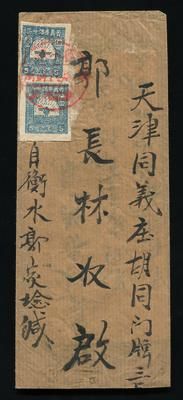 天津同義庄胡同门牌三
郭長林收啟
自衡水郭
缄